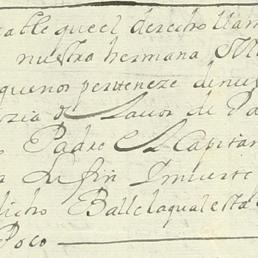 table que el derecho llam
nuestra hermana M
que nos perteneze de nu
ozia d Lauor de Pa
Padre el Capitan
su fin I muerte
dicho Balle la qual esta
Poco